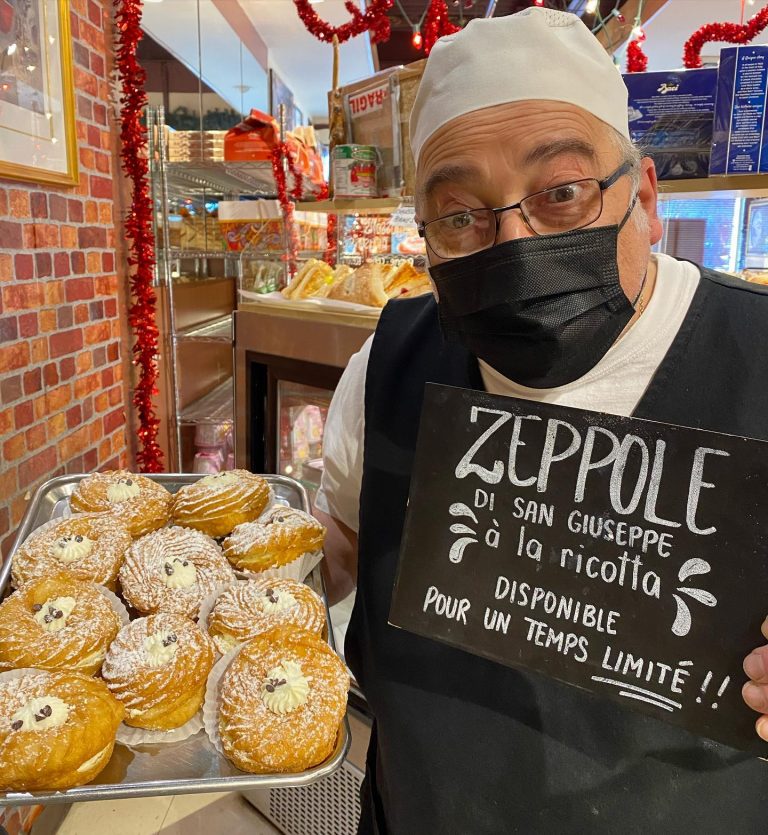 FRAGIL
Baci
ZEPPOLE
DI SAN GIUSEPPE
à la ricotta
DISPONIBLE
POUR UN TEMPS LIMITÉ!!